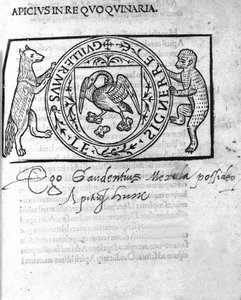 APICIVS IN RE QVOQVINARIA.
GVILLERMVS
LE SIGNERRE
Ego Gaudentius Merula possideo
Apitiũ hunc